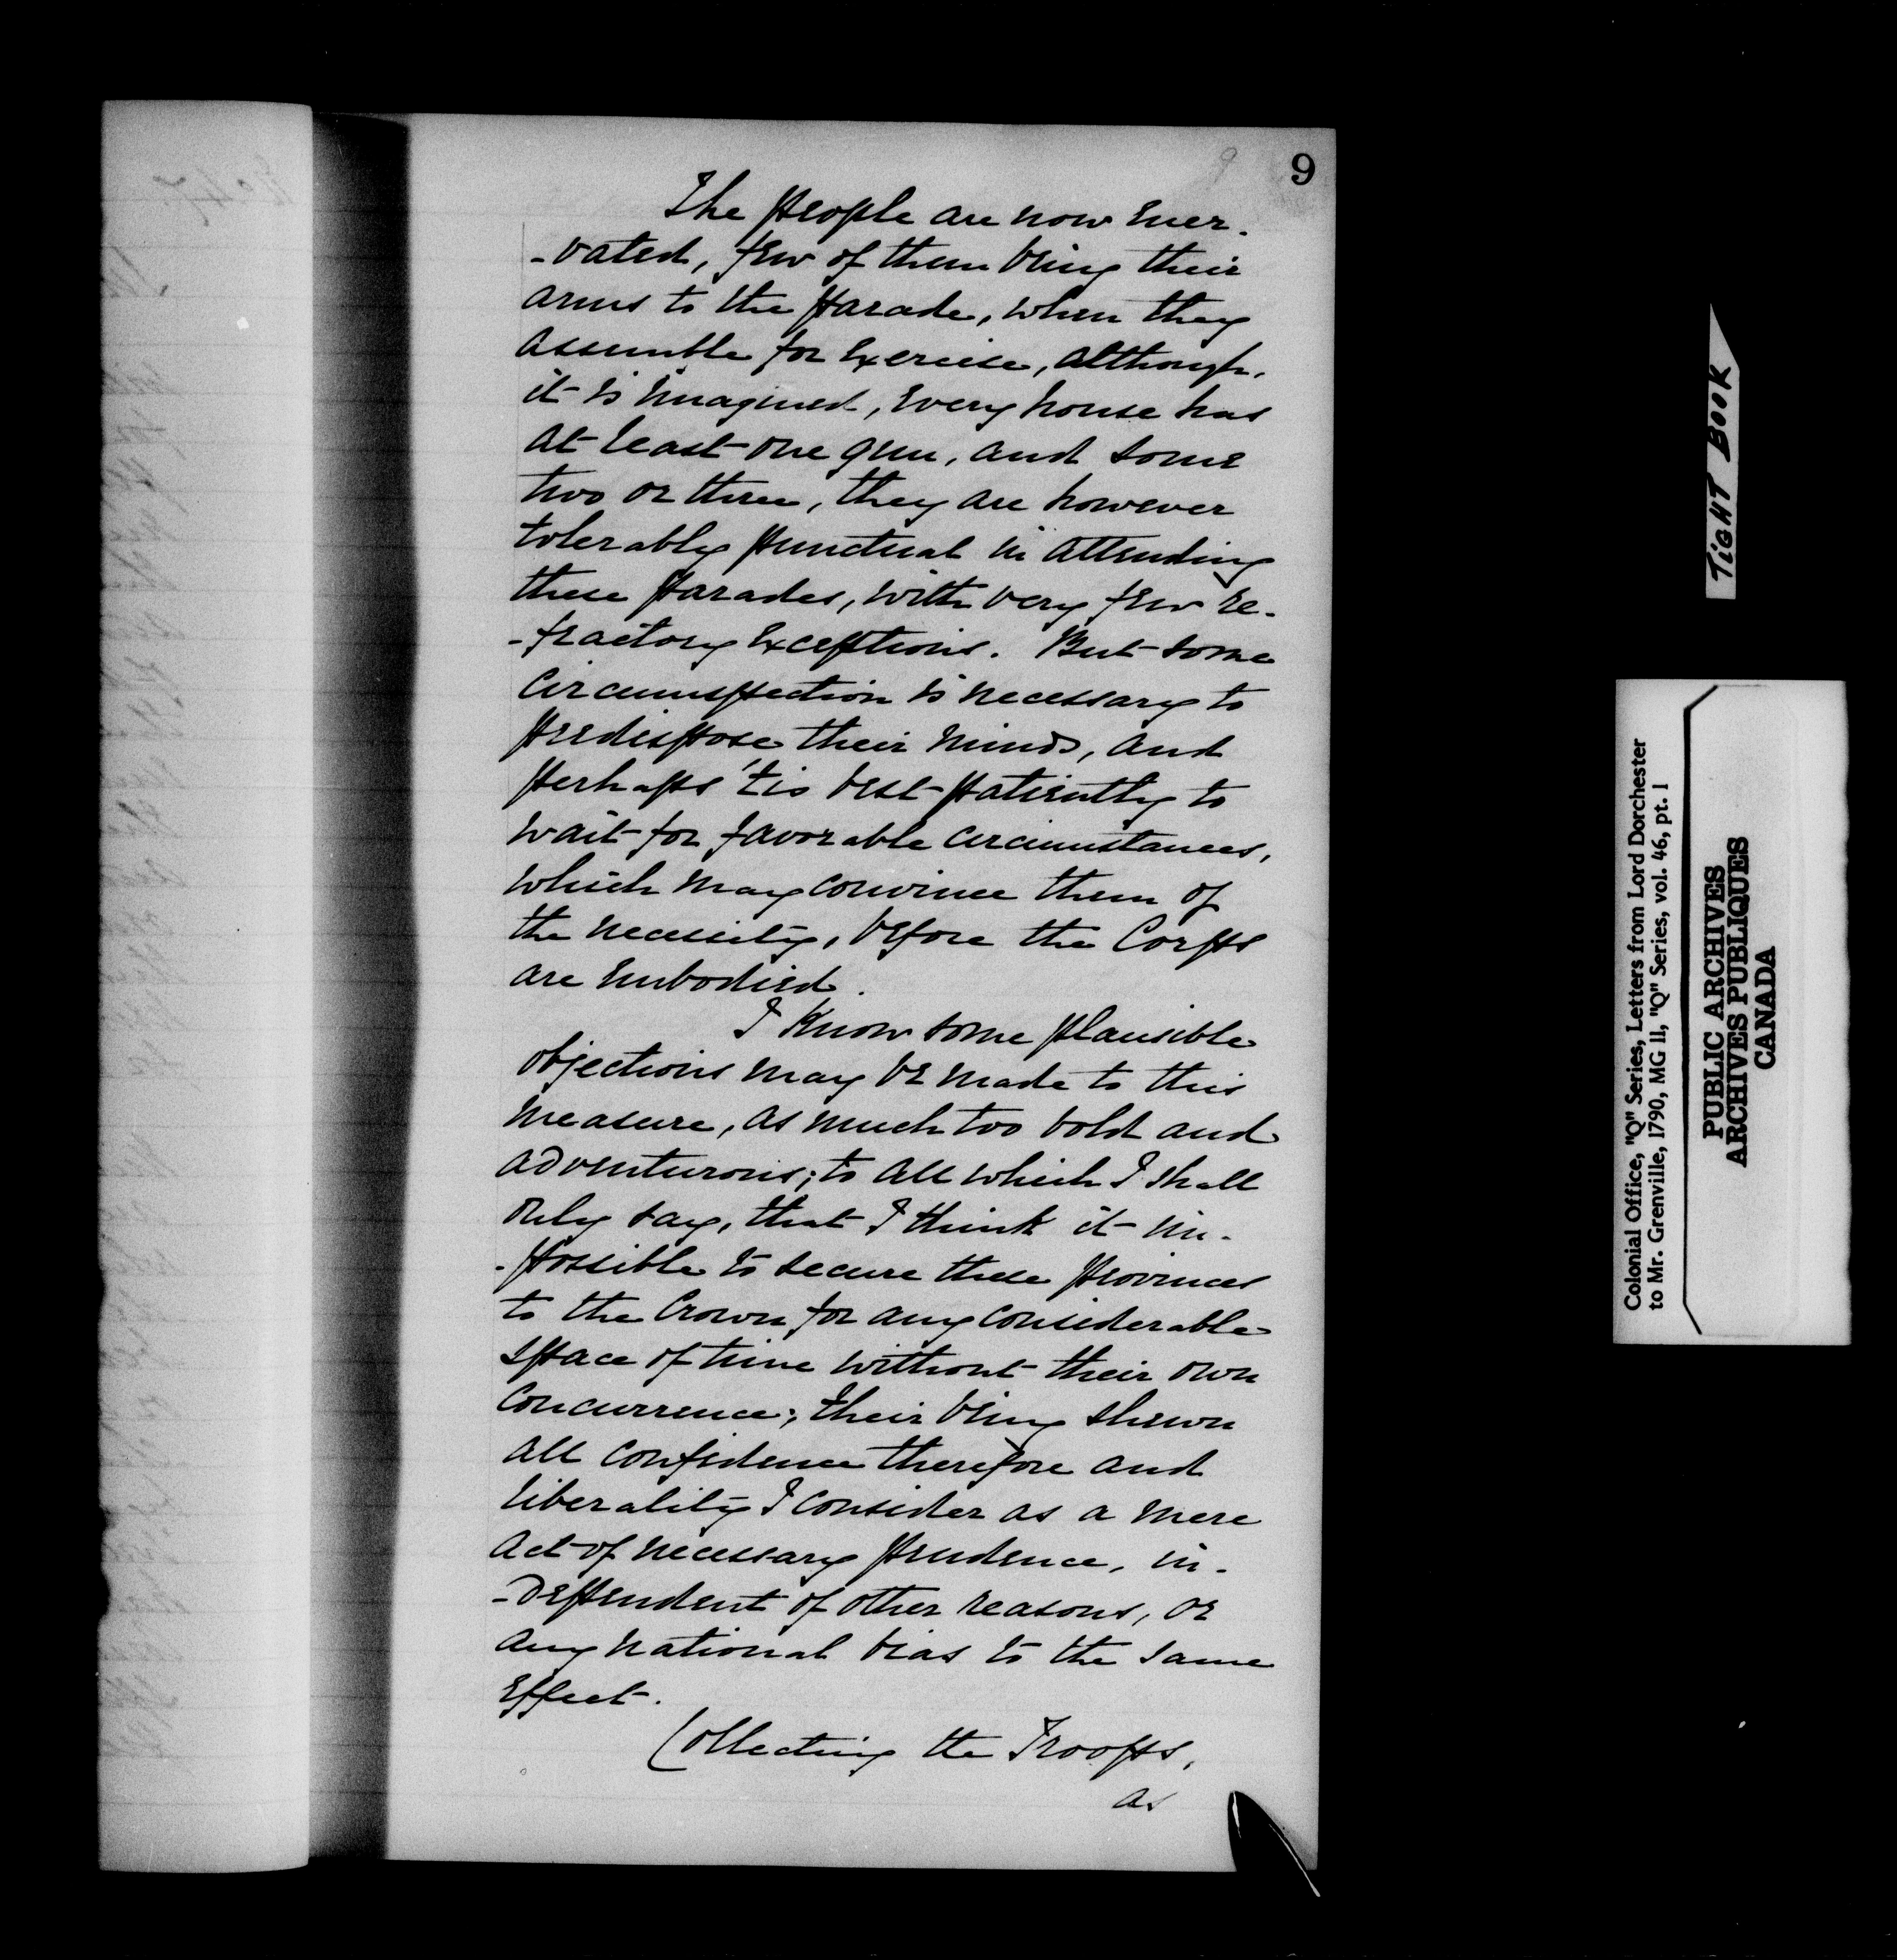 9
9
The people are now ener-
-vated, few of them bring their
arms to the parade, when they
assemble for Exercise, although,
it is imagined, every house has
at least one gun, and some
two or three, they are however
tolerably punctual in attending
these parades, with very few re-
-fractory Exceptions. But some
Circumspection is necessary to
predispose their minds, and
perhaps 'tis best patiently to
wait for favorable circumstances,
which may convince them of
the necessity, before the Corps
are Embodied.
I Know some plausible
objections may be made to this
measure, as much too bold and
adventurous; to all which I shall
only say, that I think it im-
-possible to secure these provinces
to the Crown for any considerable
space of time without their own
concurrence; their being shewn
all confidence therefore and
liberality I consider as a mere
act of necessary prudence, in-
-dependent of other reasons, or
any national bias to the same
Effect.
Collecting the Troops,
as
TIGHT BOOK
Colonial Office, "Q" Series, Letters from Lord Dorchester
to Mr. Grenville, 1790, MG 11, "Q" Series, vol. 46, pt. 1
PUBLIC ARCHIVES
ARCHIVES PUBLIQUES
CANADA